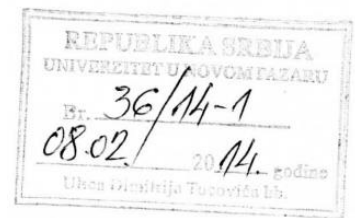 REPUBLIKA SRBIJA
UNIVERZITET U NOVOM PAZARU
Br. 36/14-1
08.02 2014. godine
Ulica Dimitrija Tucovića bb.